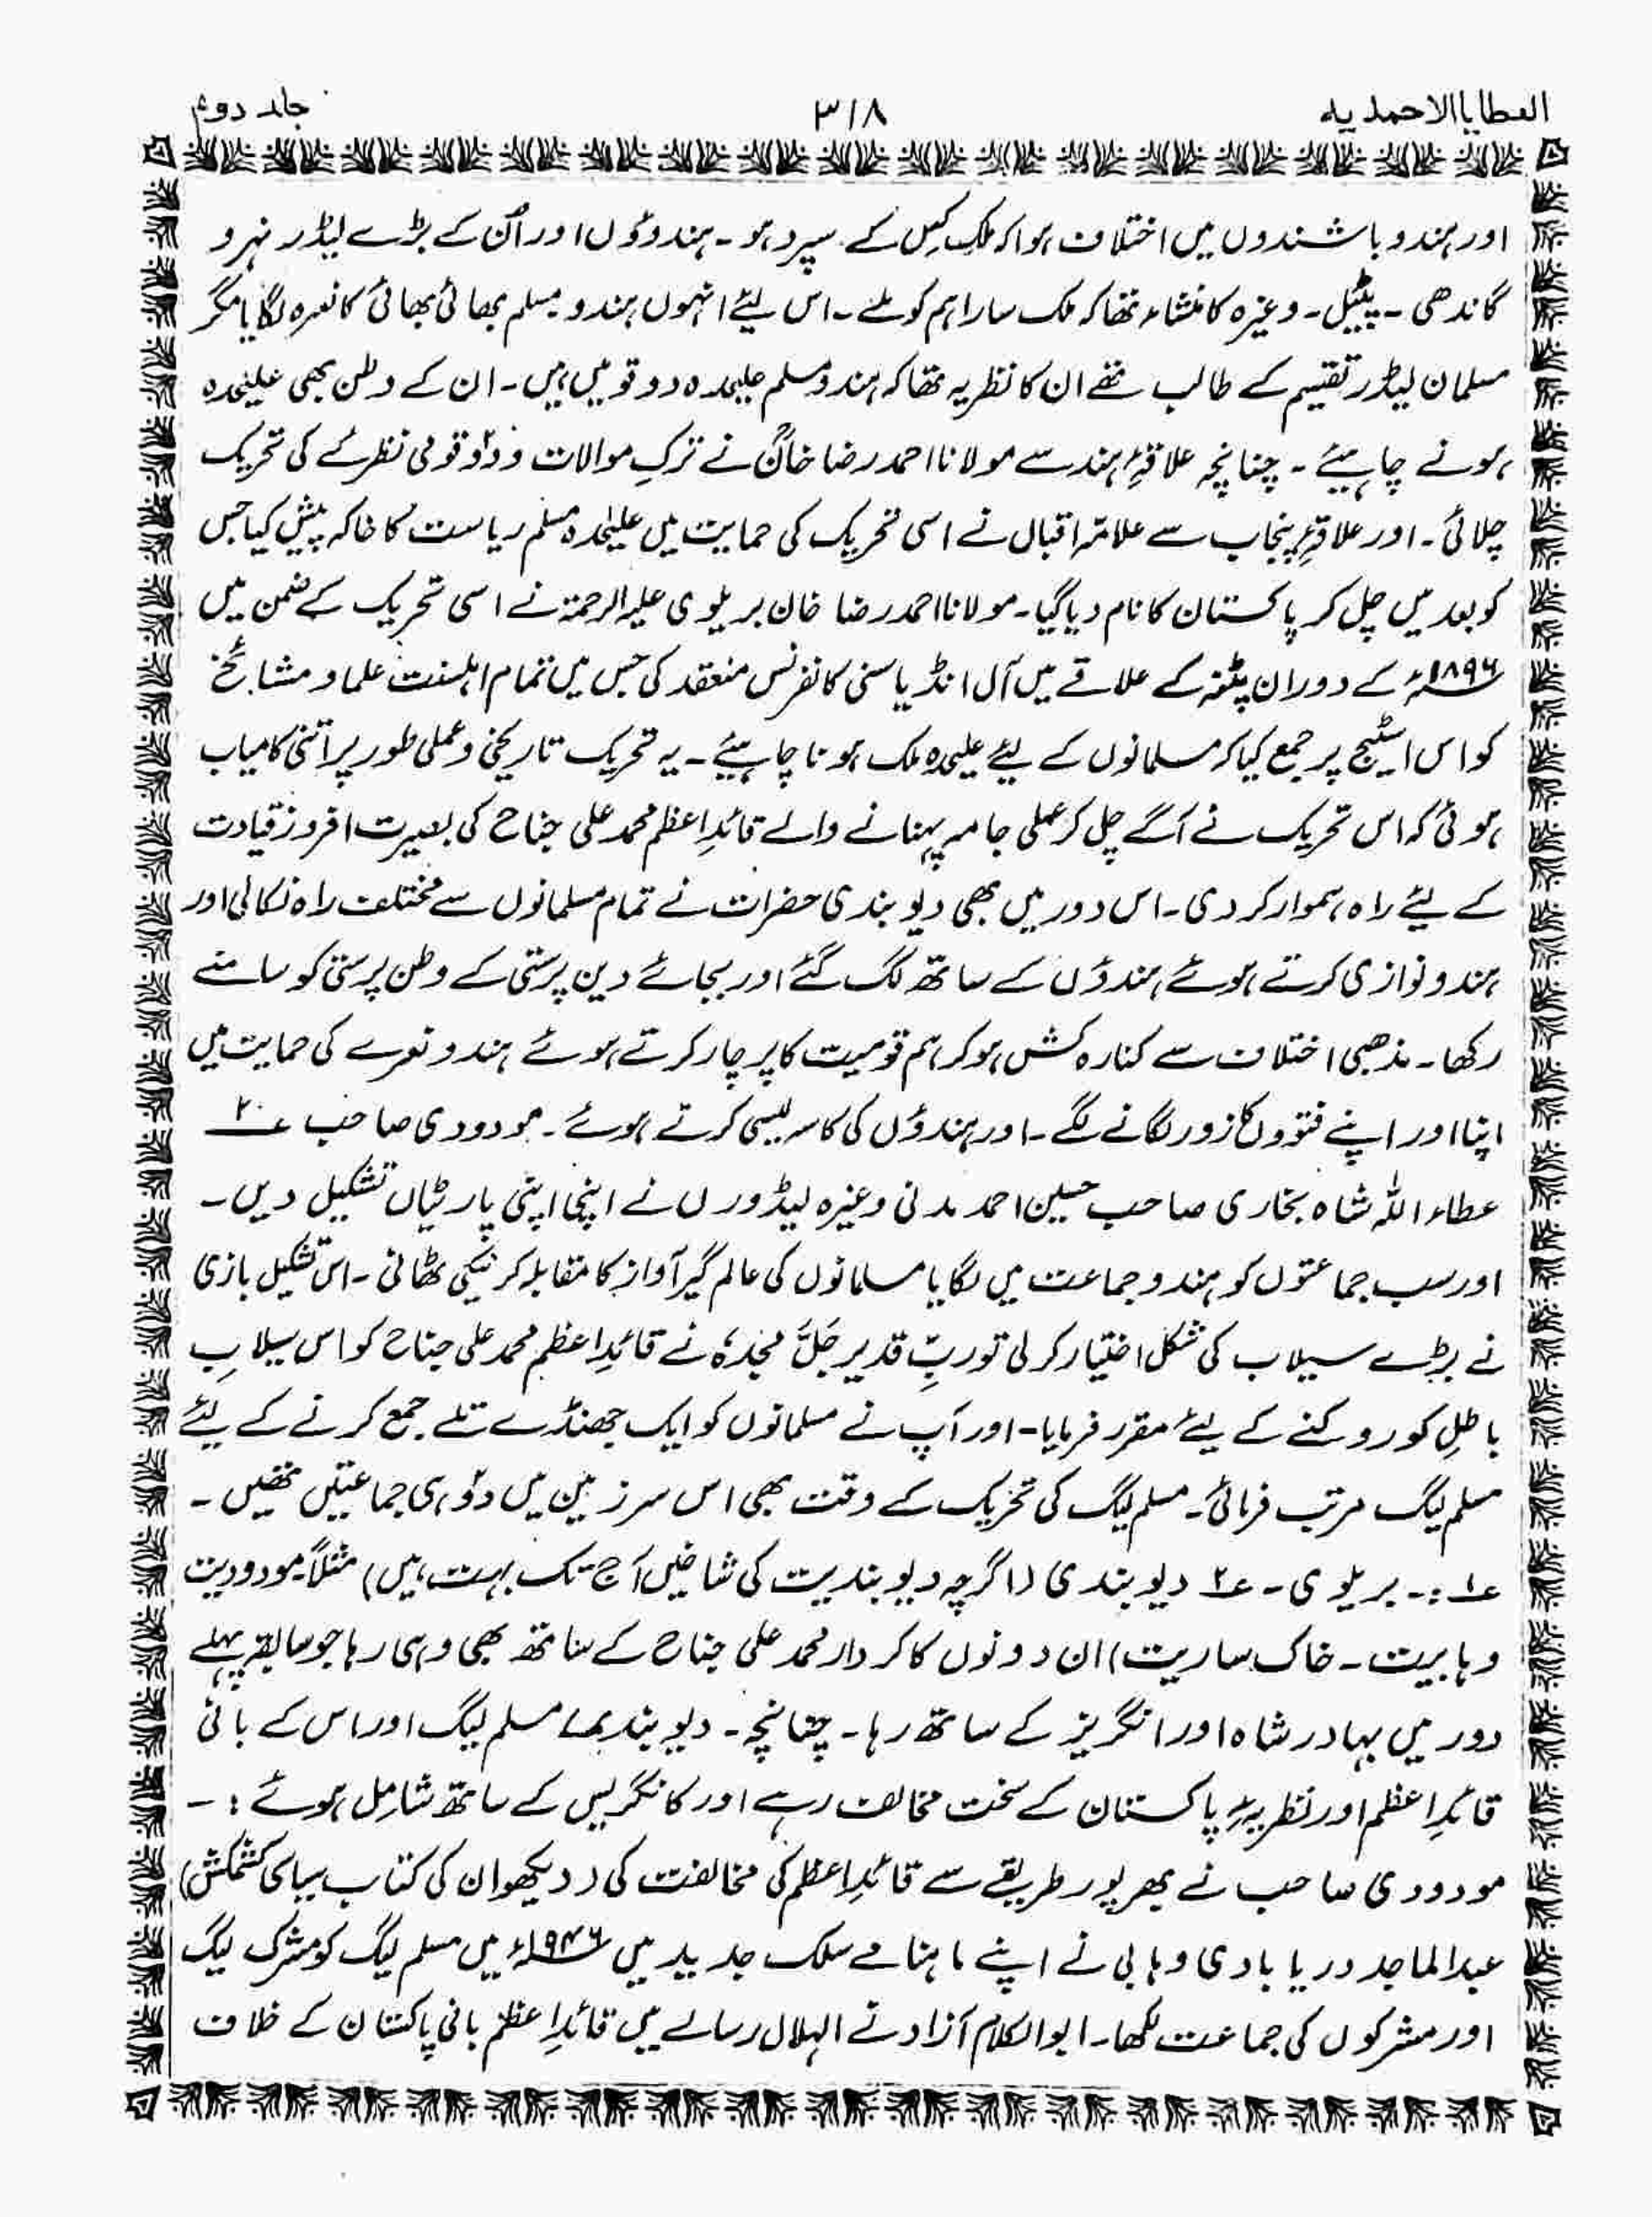 العطایا الاحمدیہ ۳۱۸ جلد دوم
اور ہندو باشندوں میں اختلاف ہوا کہ ملک کِس کے سپرد ہو۔ ہندوؤں اور اُن کے بڑے لیڈر نہرو
گاندھی ۔ پٹیل۔ وغیرہ کا منشاء تھا کہ ملک سارا ہم کو ملے ۔ اس لیئے انہوں ہندو مسلم بھائی بھائی کا نعرہ لگایا مگر
مسلمان لیڈر تقسیم کے طالب تھے ان کا نظریہ تھا کہ ہندو مسلم علیحدہ دو قومیں ہیں۔ ان کے وطن بھی علیحدہ
ہونے چاہیئے ۔ چنانچہ علاقۂ ہند سے مولانا احمد رضا خانؒ نے ترکِ موالات و دو قومی نظرئے کی تحریک
چلائی ۔ اور علاقۂ پنجاب سے علامہ اقبال نے اسی تحریک کی حمایت میں علیحدہ مسلم ریاست کا خاکہ پیش کیا جس
کو بعد میں چل کر پاکستان کا نام دیا گیا۔ مولانا احمد رضا خان بریلوی علیہ الرحمۃ نے اسی تحریک کے ضمن میں
۱۸۹۶ء کے دوران پٹنہ کے علاقے میں آل انڈیا سنی کانفرنس منعقد کی جس میں تمام اہلسنت علما و مشائخ
کو اس اسٹیج پر جمع کیا کہ مسلمانوں کے لیئے علیحدہ ملک ہونا چاہیئے ۔ یہ تحریک تاریخی و عملی طور پر اتنی کامیاب
ہوئی کہ اس تحریک نے آگے چل کر عملی جامہ پہنانے والے قائدِ اعظم محمد علی جناح کی بصیرت افروز قیادت
کے لیئے راہ ہموار کر دی۔ اس دور میں بھی دیوبندی حضرات نے تمام مسلمانوں سے مختلف راہ نکالی اور
ہندو نوازی کرتے ہوئے ہندوؤں کے ساتھ لگ گئے اور بجائے دین پرستی کے وطن پرستی کو سامنے
رکھا۔ مذھبی اختلاف سے کنارہ کش ہو کر ہم قومیت کا پرچار کرتے ہوئے ہندو نعرے کی حمایت میں
اپنا اور اپنے فتووں کا زور لگانے لگے ۔ اور ہندوؤں کی کاسہ لیسی کرتے ہوئے ۔ مودودی صاحب ؏۲۰
عطاء اللہ شاہ بخاری صاحب حسین احمد مدنی وغیرہ لیڈوروں نے اپنی اپنی پارٹیاں تشکیل دیں۔
اور سب جماعتوں کو ہندو جماعت میں لگایا مسلمانوں کی عالم گیر آواز کا مقابلہ کرنیکی ٹھانی ۔ اس تشکیل بازی
نے بڑے سیلاب کی شکل اختیار کر لی تو ربِّ قدیر جَلَّ مجدہٗ نے قائدِ اعظم محمد علی جناح کو اس سیلابِ
باطِل کو روکنے کے لیئے مقرر فرمایا۔ اور آپ نے مسلمانوں کو ایک جھنڈے تلے جمع کرنے کے لیئے
مسلم لیگ مرتب فرمائی ۔ مسلم لیگ کی تحریک کے وقت بھی اس سرزمین میں دو ہی جماعتیں تھیں ۔
؏۱ :۔ بریلوی ۔ ؏۲ دیوبندی (اگرچہ دیوبندیت کی شاخیں آج تک بہت ہیں) مثلاً مودودیت
وہابیت ۔ خاک ساریت) ان دونوں کا کردار محمد علی جناح کے ساتھ بھی وہی رہا جو سابقہ پہلے
دور میں بہادر شاہ اور انگریز کے ساتھ رہا۔ چنانچہ ۔ دیوبندی مسلم لیگ اور اس کے بانی
قائدِ اعظم اور نظریۂ پاکستان کے سخت مخالف رہے اور کانگریس کے ساتھ شامِل ہوئے :۔
مودودی صاحب نے بھر پور طریقے سے قائدِ اعظم کی مخالفت کی (دیکھو ان کی کتاب سیاسی کشمکش)
عبدالماجد دریابادی وہابی نے اپنے ماہنامے سلک جدید میں ۱۹۴۶ء میں مسلم لیگ کو مشرک لیگ
اور مشرکوں کی جماعت لکھا۔ ابوالکلام آزاد نے الہلال رسالے میں قائدِ اعظم بانی پاکستان کے خلاف